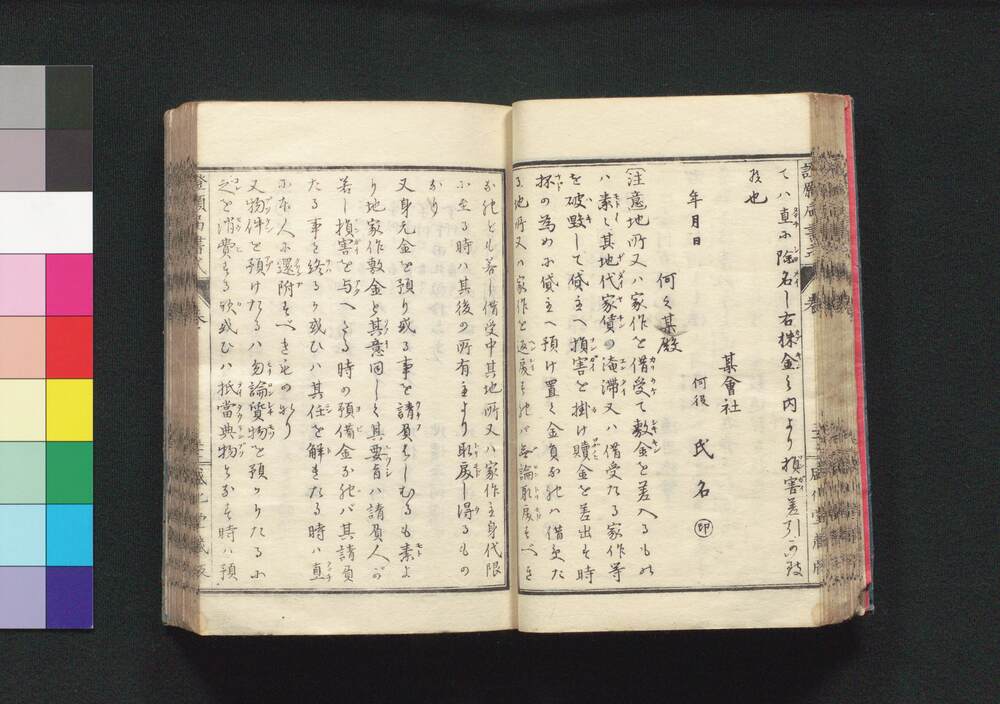 てハ直ニ除名し右株金之内より損害差引可致
候也
年月日
何後 氏名 印
某會社
何之某殿
(注意地所又ハ家作を借受て敷金を差入るもの
ハ素と其地代家賃の淹滞又ハ借受たる家作等
を破毀して貸主へ損害を掛け贖金を差出す時
抔の為めに貸主へ預け置く金員なれハ借受た
る地所又ハ家作を返戻すれバ無論取戻すべき
なれども若し借受中其地所又ハ家作主身代限
に至る時ハ其後の所有主より取戻し得るもの
なり
又身元金を預り或る事を請負はしむるも素よ
り地家作敷金と其意同しく其要旨ハ請負人が
若し損害を与へたる時の預借金なれバ其請負
たる事を終るか或ひハ其任を解きたる時ハ直
に本人に還附すべきものなり
又物件を預けたるハ勿論質物を預かりたるに
之を消費する歟或ひハ抵當典物となす時ハ預